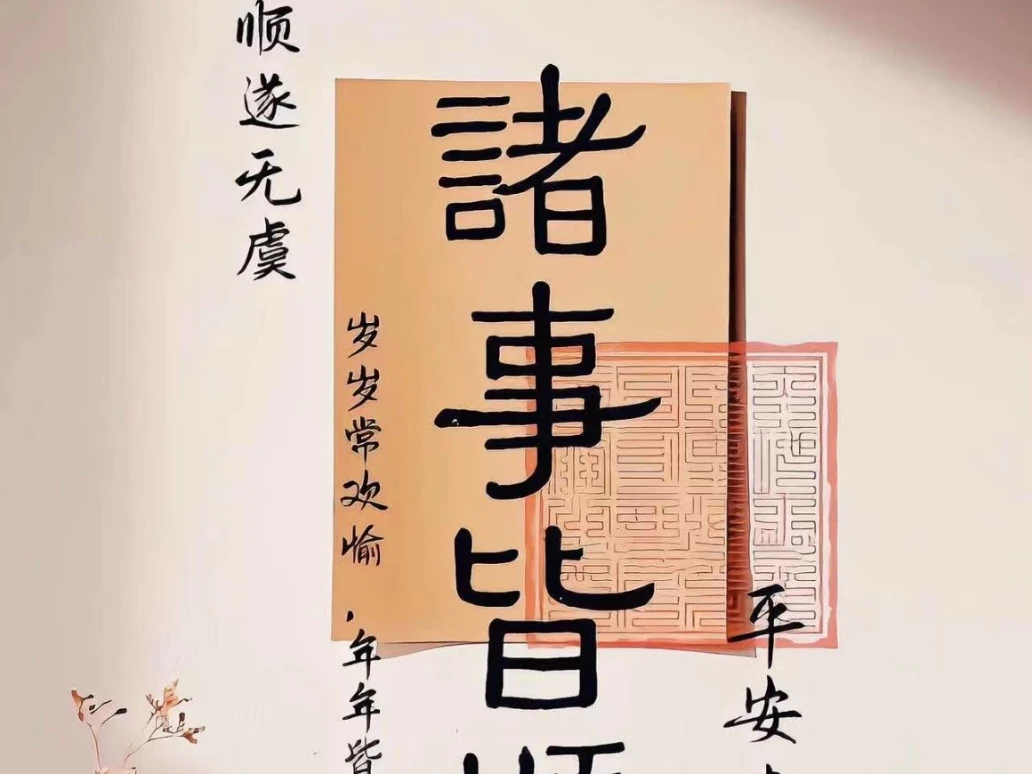 顺遂无虞
諸事皆
岁岁常欢愉,年年皆
平安